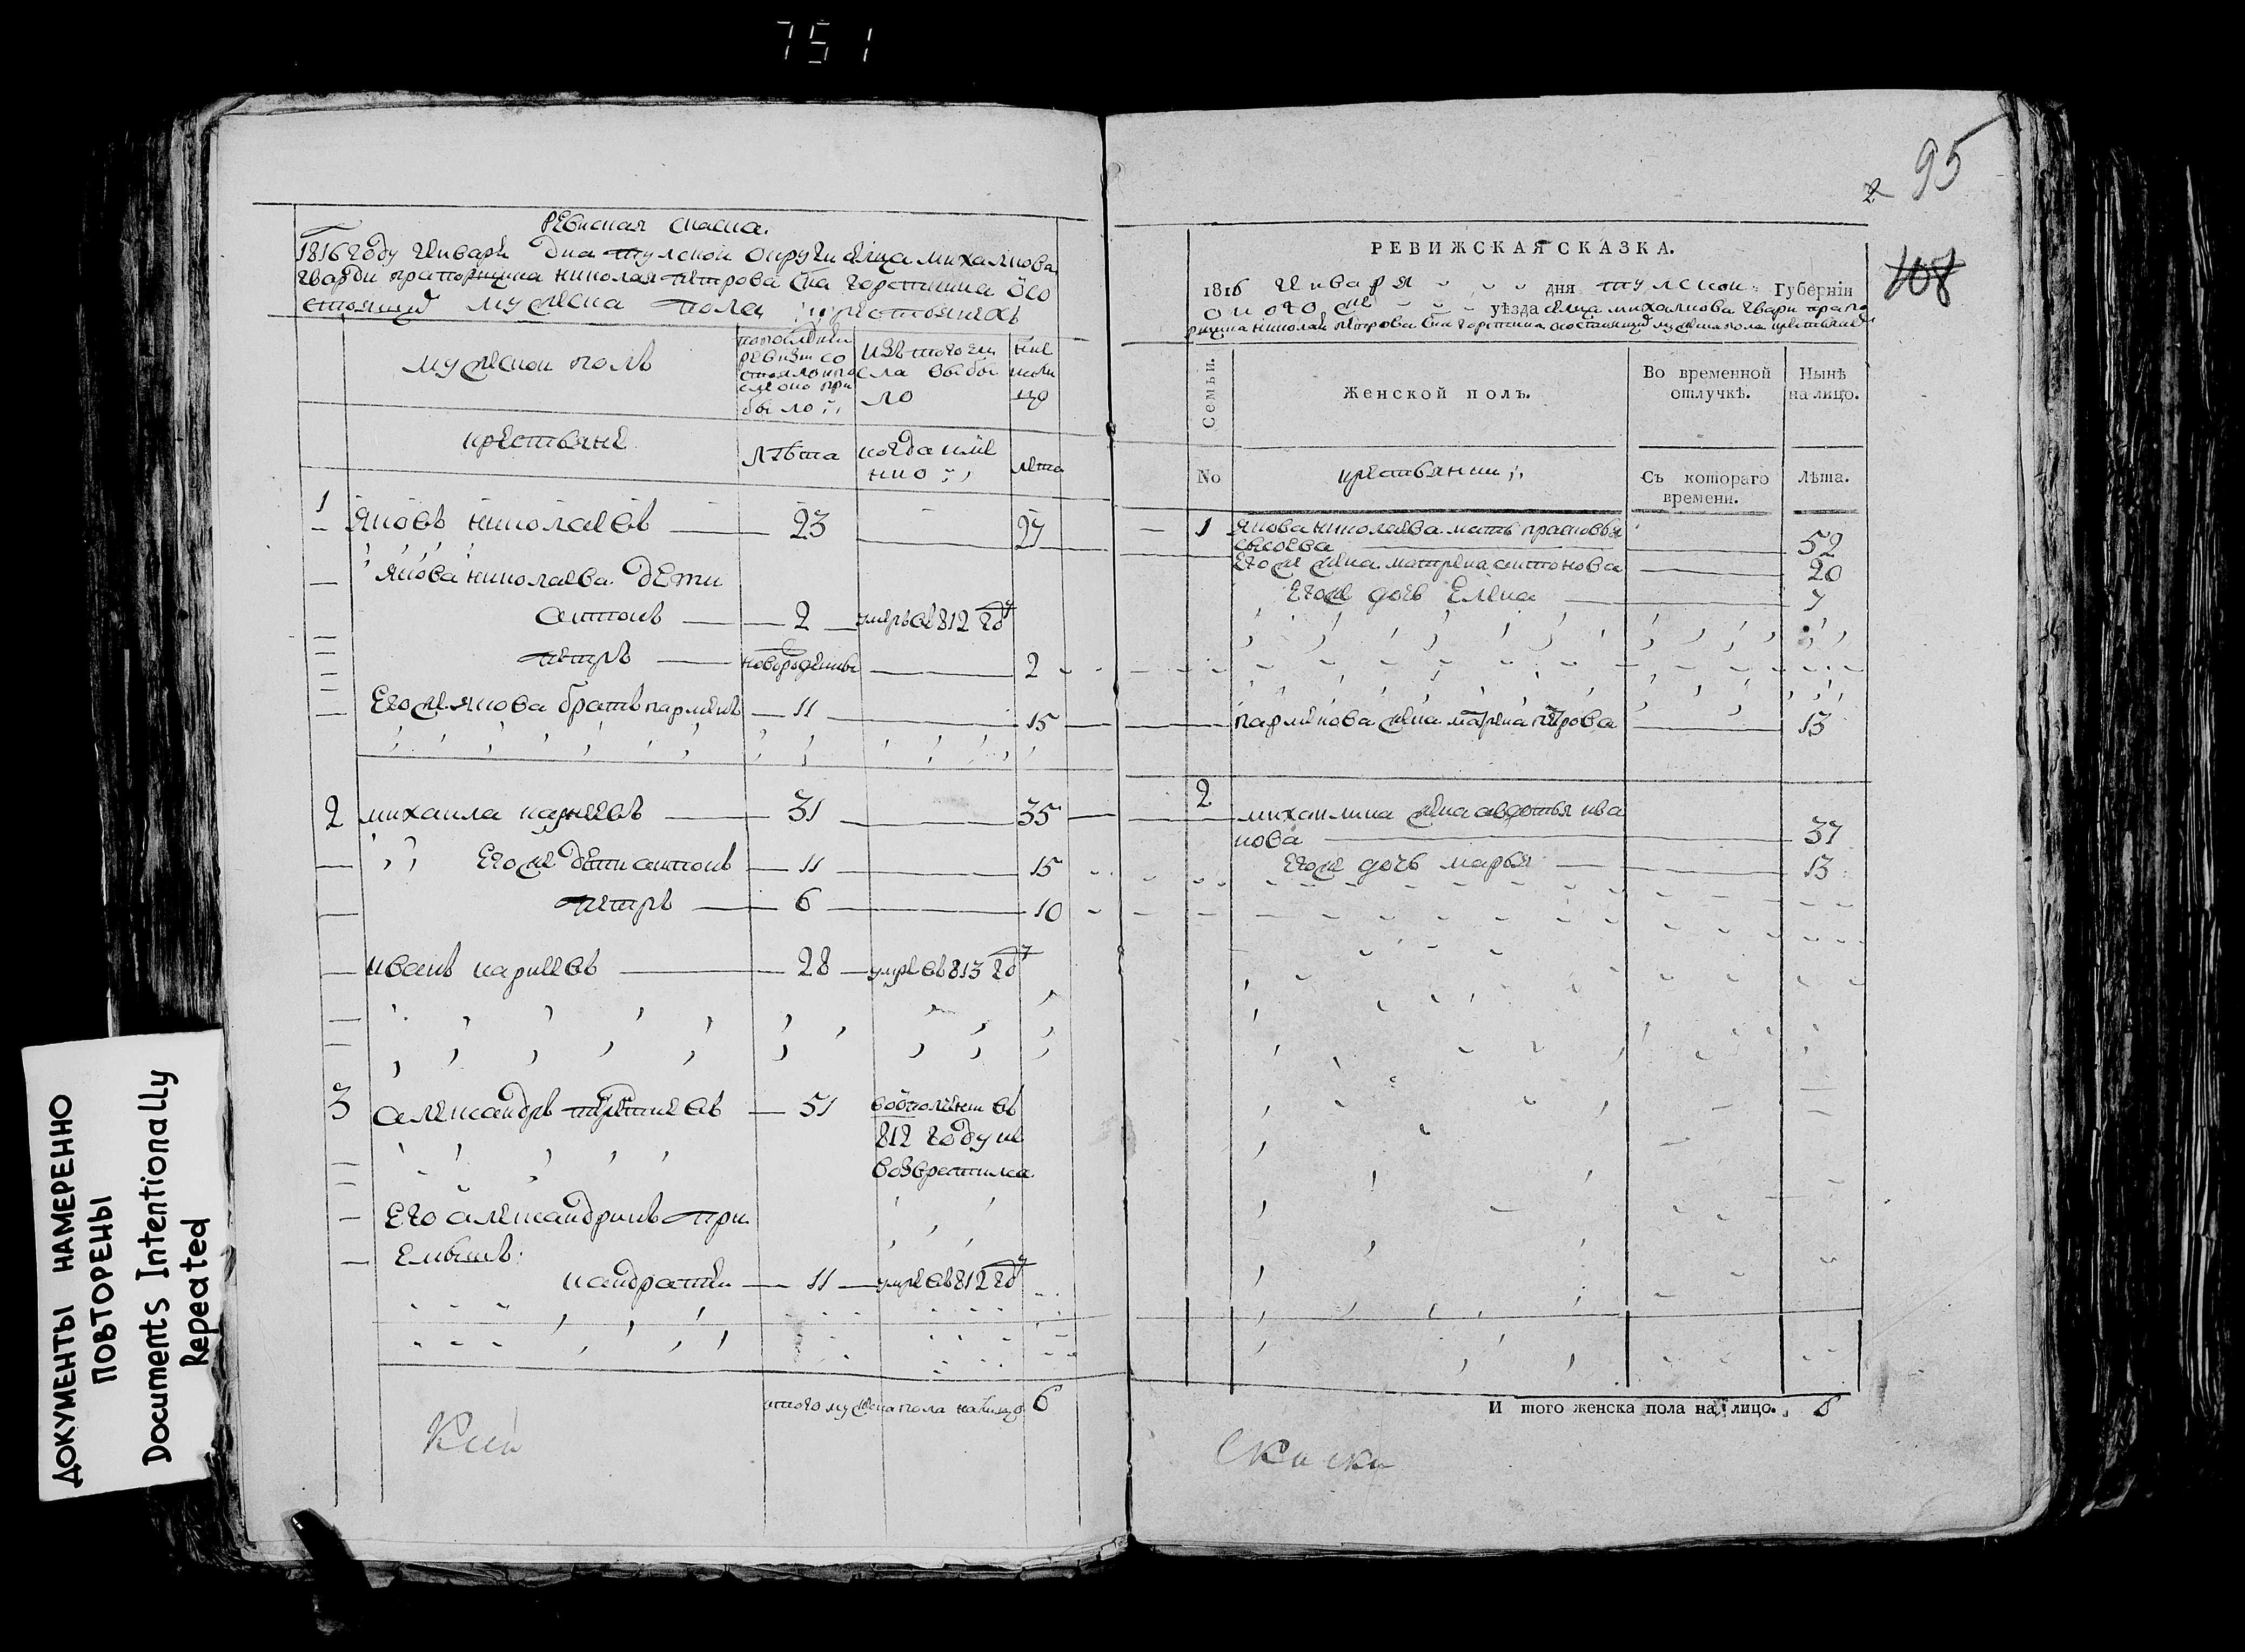 751
95
2
108
Ревиская скаска.
1816 году генваря дня тулской округи селца михалкова
гварди прапорщика николая петрова сна состоящих
мужеска пола крестьянехъ
мужеской полъ
по последней ревизи состояло и после оно прибыло
изъ того числа выбыло
ныне на лицо
крестьяне
лѣта
когда имено
лета
1 яковъ николаевъ 23 27
якова николаева дети
антонъ 2 умръ въ 812 году
петръ новорожденны 2
его же якова братъ парменъ 11 15
2 михаила карнеевъ 31 35
его же дети антонъ 11 15
петръ 6 10
иванъ карнеевъ 28 умре въ 813 году
3 александръ 51 въ
812 году не
возвратился
его александринъ при
емышъ
кандратей 11 умре въ 812 году
итого мужеска пола налицо 6
РЕВИЖСКАЯ СКАЗКА.
1816 генваря дня тулской Губернiи
оной же уѣзда селца михалкова гварди прапо
рщика николая петрова сна о состоящихъ женска пола крестьянехъ
Семьи.
Женской полъ.
Во временной отлучкѣ.
Нынѣ на лицо.
No
крестьянки
Съ котораго времени.
Лѣта.
1 якова николаева мать прасковья
сысоева 52
его же жена матрена антонова 20
его же дочь елена 7
парменова жена марена петрова 13
2
михаилина жена авдотья ива
нова 37
его же дочь марья 13
И того женска пола на лицо. 6
Скаски
ДОКУМЕНТЫ НАМЕРЕННО
ПОВТОРЕНЫ
Documents Intentionally
Repeated